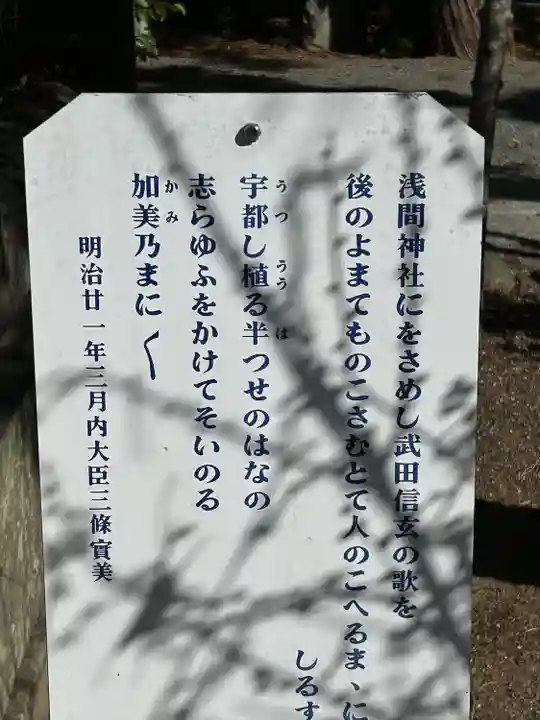 浅間神社にをさめし武田信玄の歌を
後のよまてものこさむとて人のこへるまゝに
しるす
宇都し植る半つせのはなの
うつ うう は
志らゆふをかけてそいのる
加美乃まに〱
かみ
明治廿一年三月内大臣三條實美